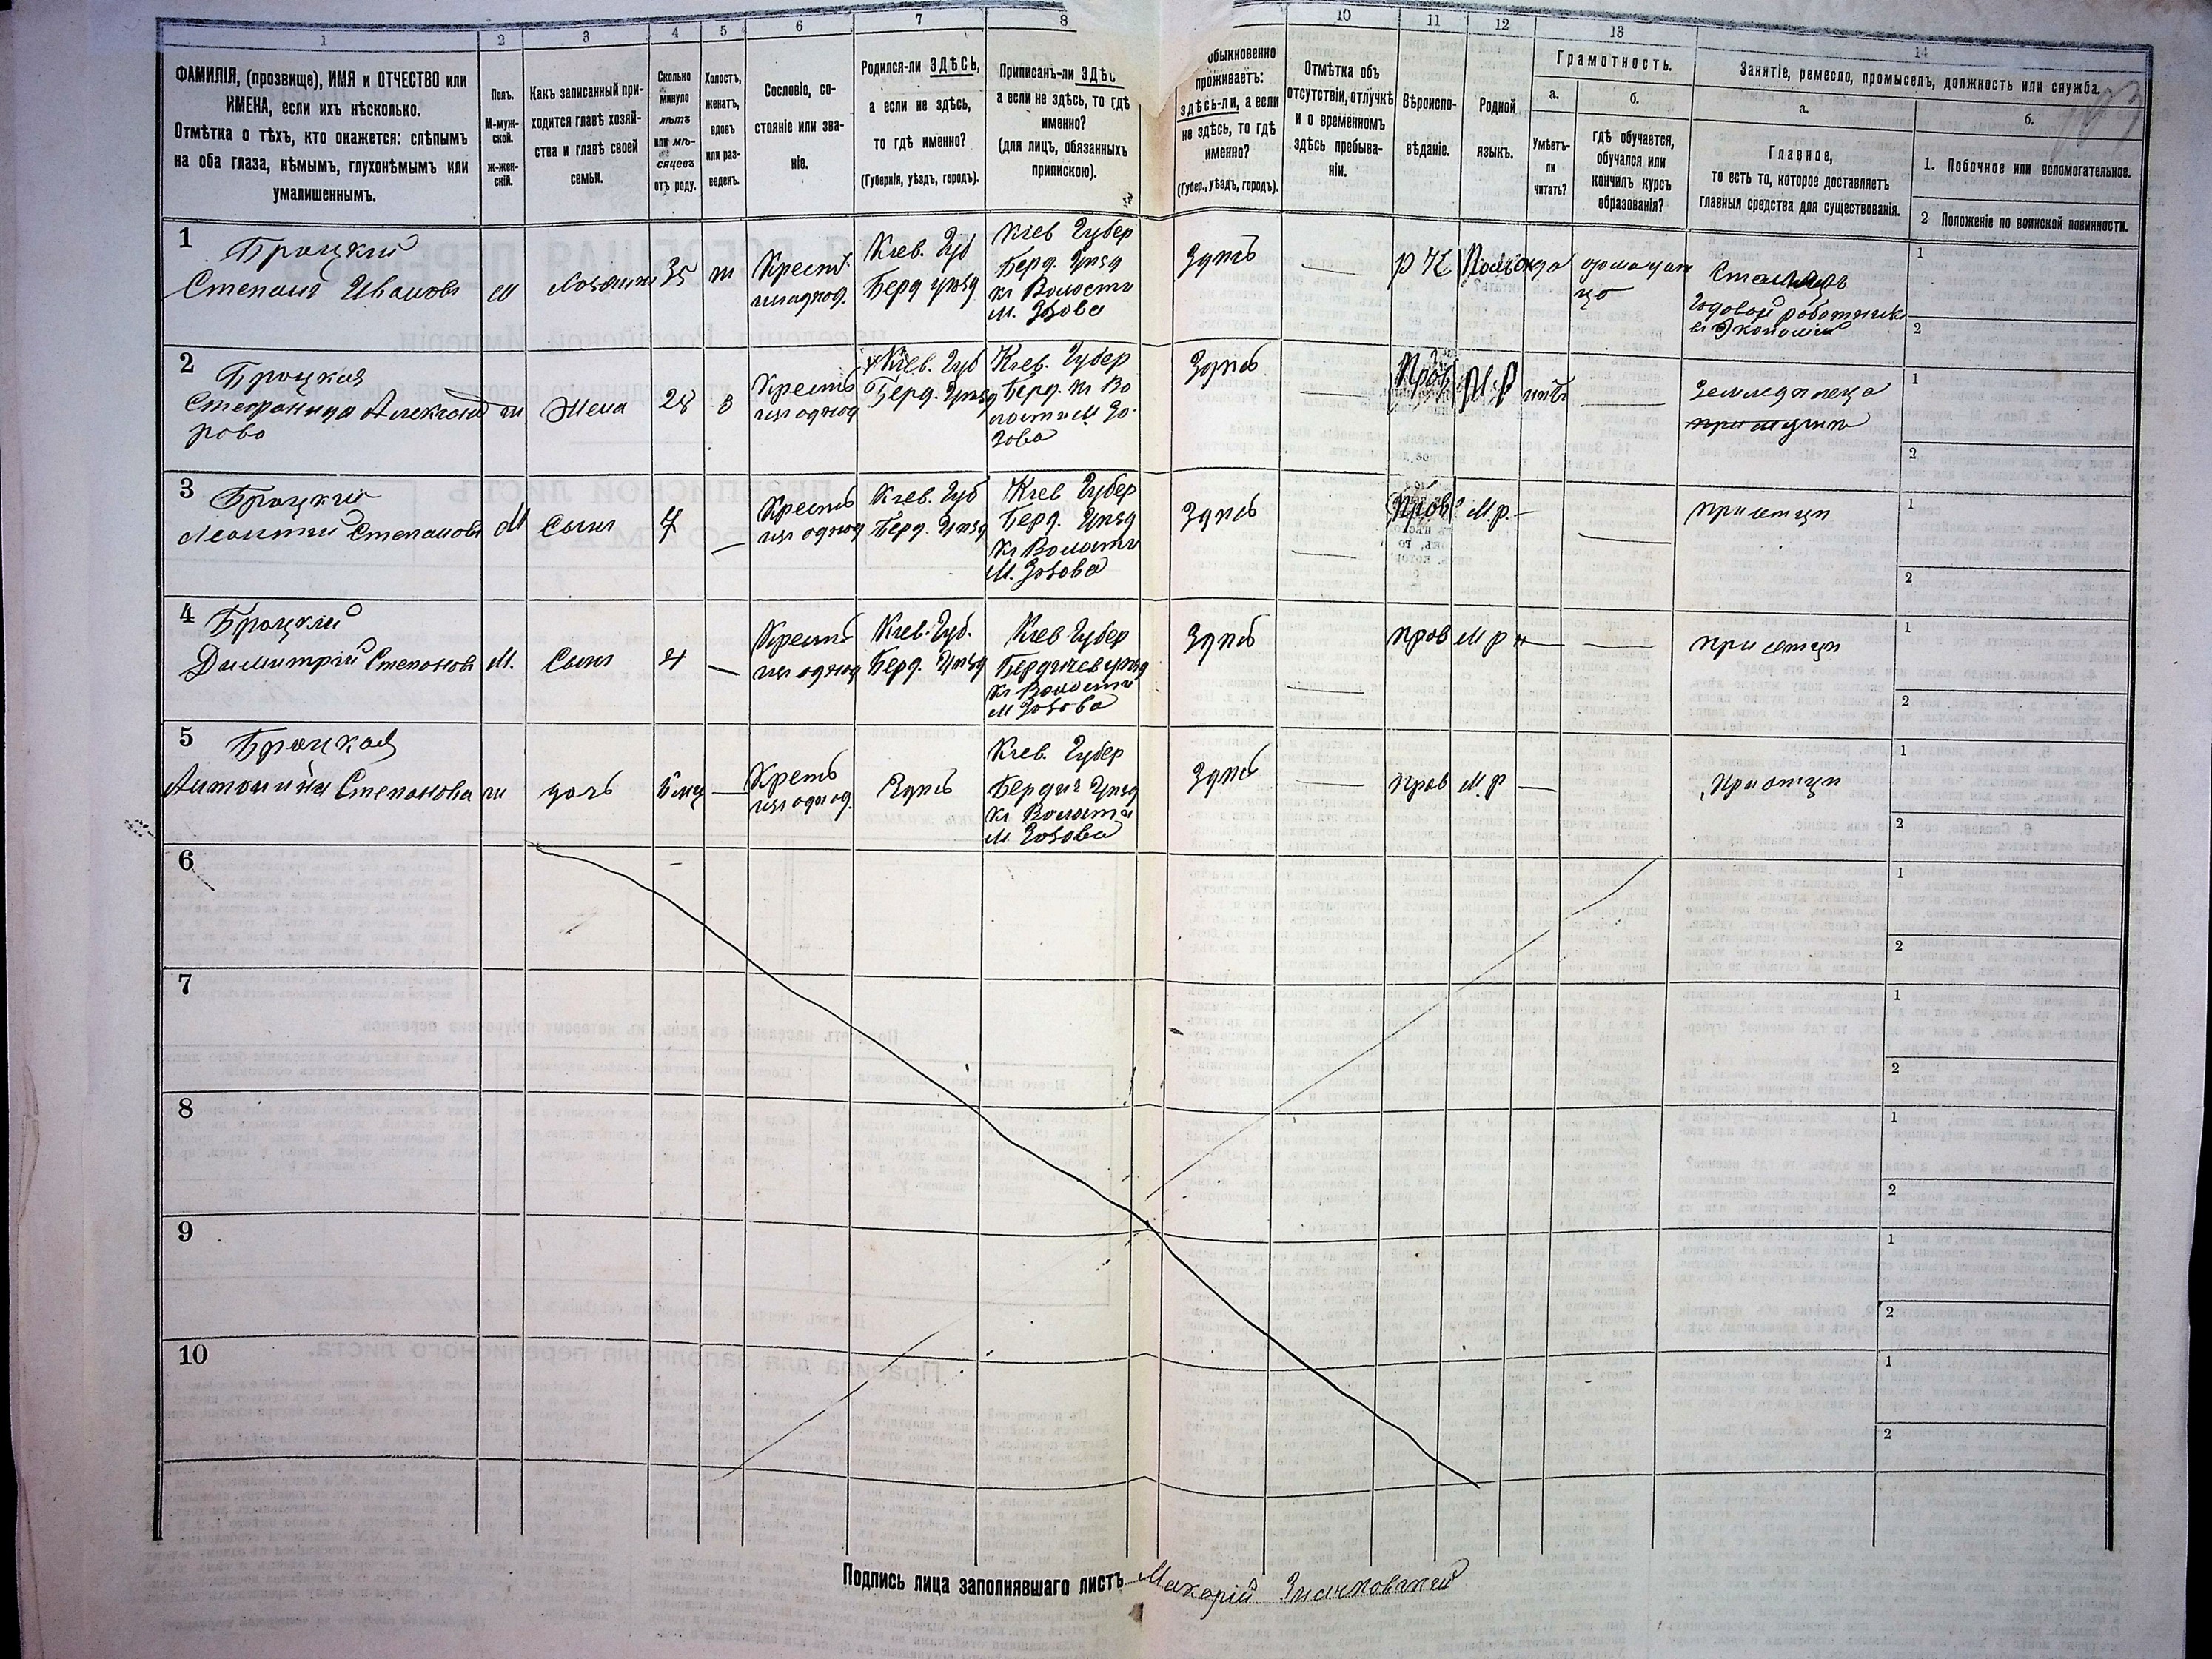 1 2 3 4 5 6 7 8 10 11 12 13 14
ФАМИЛІЯ, (прозвище), ИМЯ и ОТЧЕСТВО или
ИМЕНА, если ихъ нѣсколько.
Отмѣтка о тѣхъ, кто окажется: слѣпымъ
на оба глаза, нѣмымъ, глухонѣмымъ или
умалишеннымъ.
Полъ.
М-муж-
ской.
ж-жен-
скій.
Какъ записанный при-
ходится главѣ хозяй-
ства и главѣ своей
семьи.
Сколько
минуло
лѣтъ
или мѣ-
сяцевъ
отъ роду.
Холостъ,
женатъ,
вдовъ
или раз-
веденъ.
Сословіе, со-
стояніе или зва-
ніе.
Родился-ли ЗДѢСЬ,
а если не здѣсь,
то гдѣ именно?
(Губернія, уѣздъ, городъ).
Приписанъ-ли ЗДѢС
а если не здѣсь, то гдѣ
именно?
(для лицъ, обязанныхъ
припискою).
обыкновенно
проживаетъ:
здѣсь-ли, а если
не здѣсь, то гдѣ
именно?
(Губер., уѣздъ, городъ).
Отмѣтка объ
отсутствіи, отлучкѣ
и о временномъ
здѣсь пребыва-
ніи.
Вѣроиспо-
вѣданіе.
Родной
языкъ.
Грамотность.
а.
Умѣетъ-
ли
читать?
б.
гдѣ обучается,
обучался или
кончилъ курсъ
образованія?
Занятіе, ремесло, промыселъ, должность или служба.
а.
Главное,
то есть то, которое доставляетъ
главныя средства для существованія.
б.
1. Побочное или вспомогательное.
2 Положеніе по воинской повинности.
1
Броцкій
Степанъ Ивановъ
35
Крест.
изъ однод.
Кіев. Губ
Берд уѣзд
Кіев Губер
Берд. Уѣзд
М. Зозова
Здѣсь
Р К
да
Столяръ
Годовой работникъ
въ Экономіи
1
2
2
Броцкая
Стефанида Александ
рова
Жена
Крестъ
изъ однод
Кіев. Губ
Берд. Уѣзд
Кіев. Губер
Берд. Во
лости М Зо
зова
Здѣсь
Прав
М.Р
нѣтъ
1
2
3
Броцкій
Леонтій Степановъ
М
Сынъ
7
Крестъ
изъ однод
Кіев. Губ
Берд. Уѣзд
Кіев Губер
Берд. Уѣзд
Волости
М. Зозова
Здѣсь
Прав
М.р.
При отцѣ
1
2
4
Броцкій
Димитрій Степанов
М.
Сынъ
4
Крестъ
изъ однод
Кіев. Губ.
Берд. Уѣзд
Кіев Губер
Бердичев уѣзд
Волости
М Зозова
Здѣсь
Прав
М р
При отцѣ
1
2
5
Броцкая
Антонина Степанова
дочь
Кресть
изъ однод.
Здѣсь
Кіев. Губер
Бердич Уѣзд
Волости
М. Зозова
Здѣсь
Прав
М.Р
При отцѣ
1
2
6
1
2
7
1
2
8
1
2
9
1
2
10
1
2
Подпись лица заполнявшаго листъ Макарій